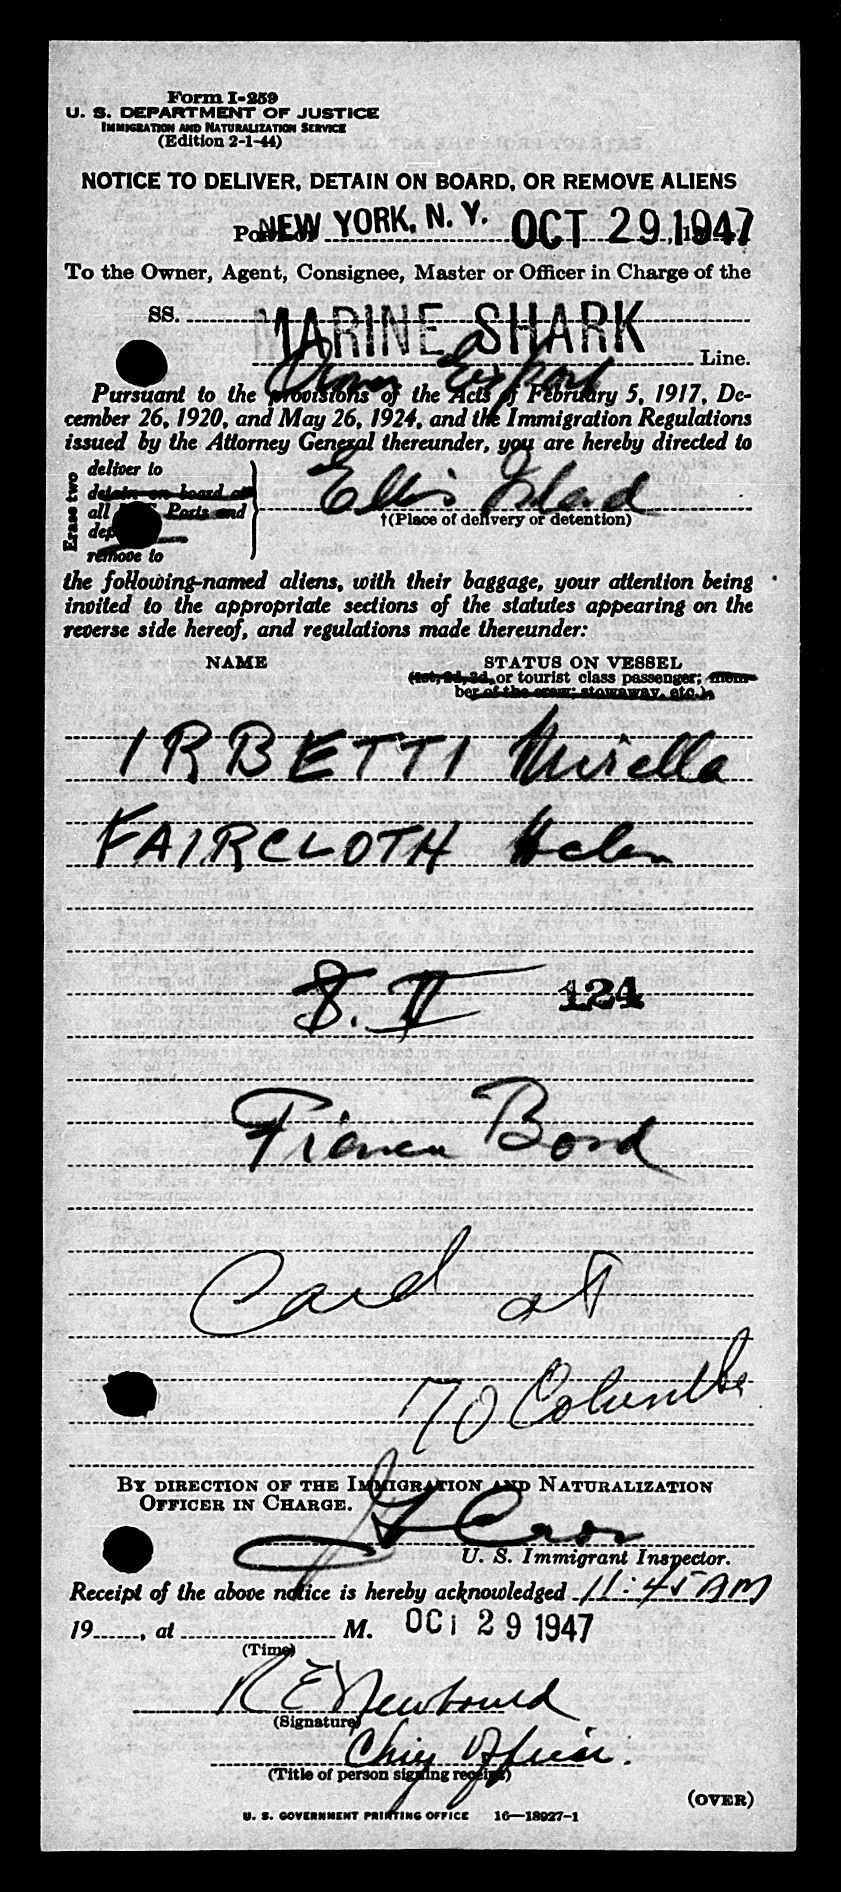 Form I-259
U. S. DEPARTMENT OF JUSTICE
IMMIGRATION AND NATURALIZATION SERVICE
(Edition 2-1-44)
NOTICE TO DELIVER, DETAIN ON BOARD, OR REMOVE ALIENS
Port of NEW YORK, N. Y. OCT 29 1947
To the Owner, Agent, Consignee, Master or Officer in Charge of the
SS. MARINE SHARK
Amer Export Line.
Pursuant to the provisions of the Acts of February 5, 1917, De-
cember 26, 1920, and May 26, 1924, and the Immigration Regulations
issued by the Attorney General thereunder, you are hereby directed to
Erase two
deliver to
detain on board at
all Ports and
remove to
Ellis Island
†(Place of delivery or detention)
the following-named aliens, with their baggage, your attention being
invited to the appropriate sections of the statutes appearing on the
reverse side hereof, and regulations made thereunder:
NAME STATUS ON VESSEL
(1st, 2d, 3d, or tourist class passenger; mem-
ber of the crew; stowaway, etc.)
IRBETTI Mirella
FAIRCLOTH Helen
8. II 124
Fiancee Bond
Card at
70 Columbus
BY DIRECTION OF THE IMMIGRATION AND NATURALIZATION
OFFICER IN CHARGE.
U. S. Immigrant Inspector.
Receipt of the above notice is hereby acknowledged 11:45 AM
19......, at M. OCT 29 1947
(Time)
R E Newbould
(Signature)
Chief Officer.
(Title of person signing receipt)
(OVER)
U. S. GOVERNMENT PRINTING OFFICE 16—18927-1